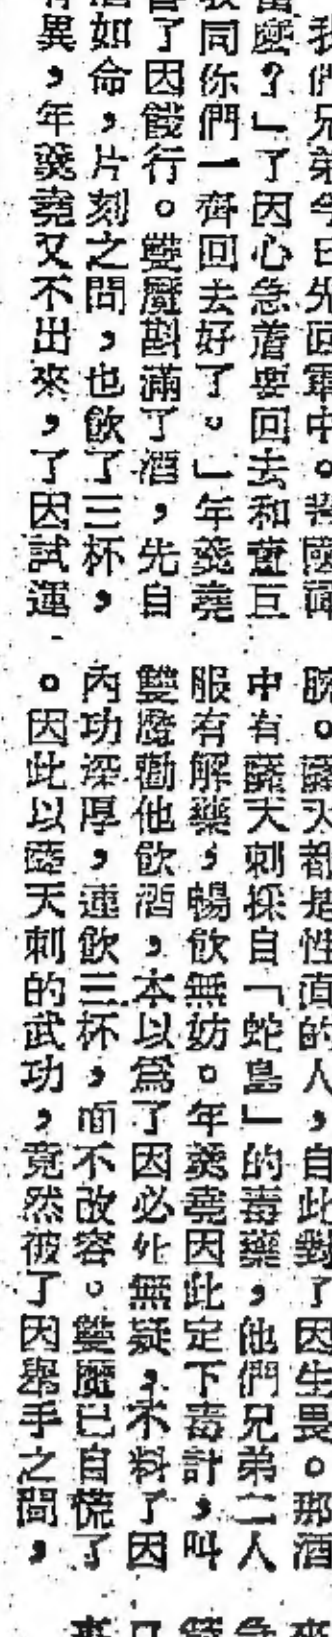 我們兄弟今日先回軍中。若國師
麼?」了因心急着要回去和董巨
同你們一齊回去好了。」年羹堯
了因餞行。雙魔斟滿了酒,先自
如命,片刻之間,也飲了三杯,
異,年羹堯又不出來,了因試運
腕。薩天都是性直的人,自此對了因生畏。那酒
中有薩天刺採自「蛇島」的毒藥,他們兄弟二人
服有解藥,暢飲無妨。年羹堯因此定下毒計,叫
雙魔勸他飲酒,本以爲了因必死無疑,不料了因
內功深厚,連飲三杯,面不改容。雙魔已自慌了
。因此以薩天刺的武功,竟然被了因舉手之間,